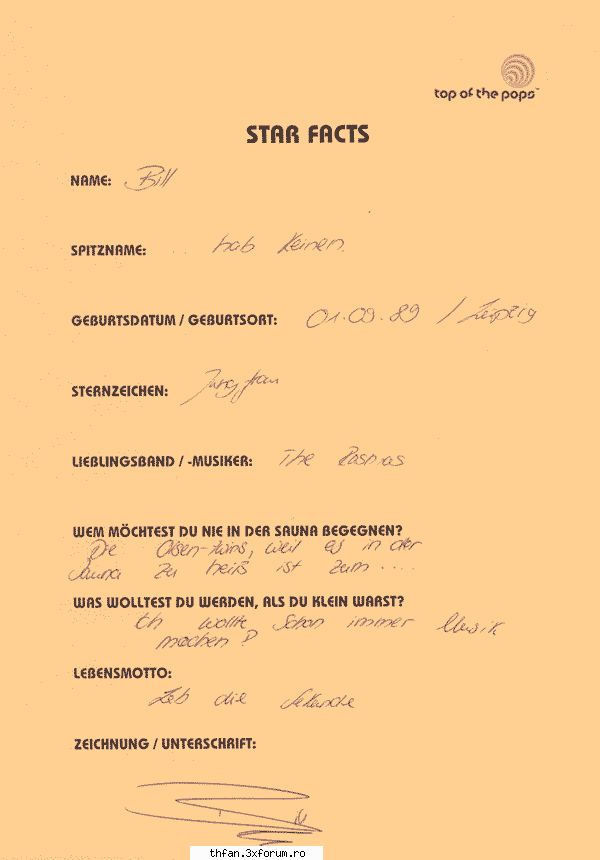 top of the pops™
STAR FACTS
NAME: Bill
SPITZNAME: hab keinen
GEBURTSDATUM / GEBURTSORT: 01.09.89 / Leipzig
STERNZEICHEN: Jungfrau
LIEBLINGSBAND / -MUSIKER: The Rasmus
WEM MÖCHTEST DU NIE IN DER SAUNA BEGEGNEN?
Die Olsen-twins, weil es in der
Sauna zu heiß ist zum ....
WAS WOLLTEST DU WERDEN, ALS DU KLEIN WARST?
Ich wollte schon immer Musik
machen
LEBENSMOTTO:
Leb die Sekunde
ZEICHNUNG / UNTERSCHRIFT:
thfan.3xforum.ro